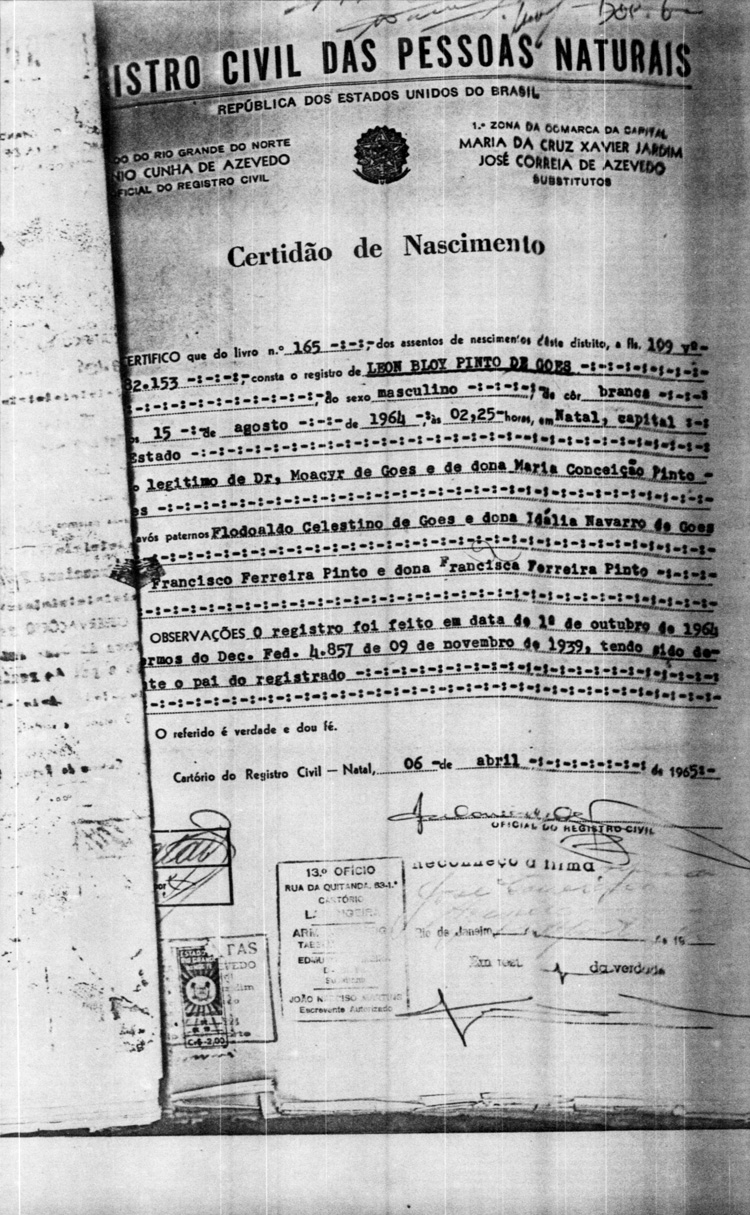 ISTRO CIVIL DAS PESSOAS NATURAIS
REPÚBLICA DOS ESTADOS UNIDOS DO BRASIL
DO DO RIO GRANDE DO NORTE
NIO CUNHA DE AZEVEDO
OFICIAL DO REGISTRO CIVIL
1.ª ZONA DA COMARCA DA CAPITAL
MARIA DA CRUZ XAVIER JARDIM
JOSÉ CORREIA DE AZEVEDO
SUBSTITUTOS
Certidão de Nascimento
CERTIFICO que do livro n.º 165 -:-:-;- dos assentos de nascimentos dêste distrito, a fls. 109 vº-
82.153 -:-:-:-;- consta o registro de LEON BLOY PINTO DE GOES -:-:-:-:-:-:-:-
-:-:-:-:-:-:-:-:-:-;- do sexo masculino -:-:-:-:-; de côr branca -:-:-:
os 15 -:- de agosto -:-:-:- de 1964 -:às 02,25-horas, em Natal, capital :-:
Estado -:-:-:-:-:-:-:-:-:-:-:-:-:-:-:-:-:-:-:-:-:-:-
o legítimo de Dr. Moacyr de Goes e de dona Maria Conceição Pinto -
es -:-:-:-:-:-:-:-:-:-:-:-:-:-:-:-:-:-:-:-:-:-:-:-
avós paternos Flodoaldo Celestino de Goes e dona Idália Navarro de Goes
-:-:-:-:-:-:-:-:-:-:-:-:-:-:-:-:-:-:-:-:-:-:-:-:-
Francisco Ferreira Pinto e dona Francisca Ferreira Pinto -:-:-:-
-:-:-:-:-:-:-:-:-:-:-:-:-:-:-:-:-:-:-:-:-:-:-:-:-
OBSERVAÇÕES O registro foi feito em data de 1º de outubro de 1964
ermos do Dec. Fed. 4.857 de 09 de novembro de 1939, tendo sido de-
te o pai do registrado -:-:-:-:-:-:-:-:-:-:-:-:-:-:-
-:-:-:-:-:-:-:-:-:-:-:-:-:-:-:-:-:-:-:-:-:-:-:-:-
O referido é verdade e dou fé.
Cartório do Registro Civil — Natal, 06 -de abril -:-:-:-:-:-:-: de 1965:-
OFICIAL DO REGISTRO CIVIL
Reconheço a firma
13.º OFÍCIO
RUA DA QUITANDA, 63-1.º
CARTÓRIO
JOÃO
Escrevente Autorizado
Rio de Janeiro, de 19
da verdade
TAS
VEDO
ESTADO
Cr$ 2,00